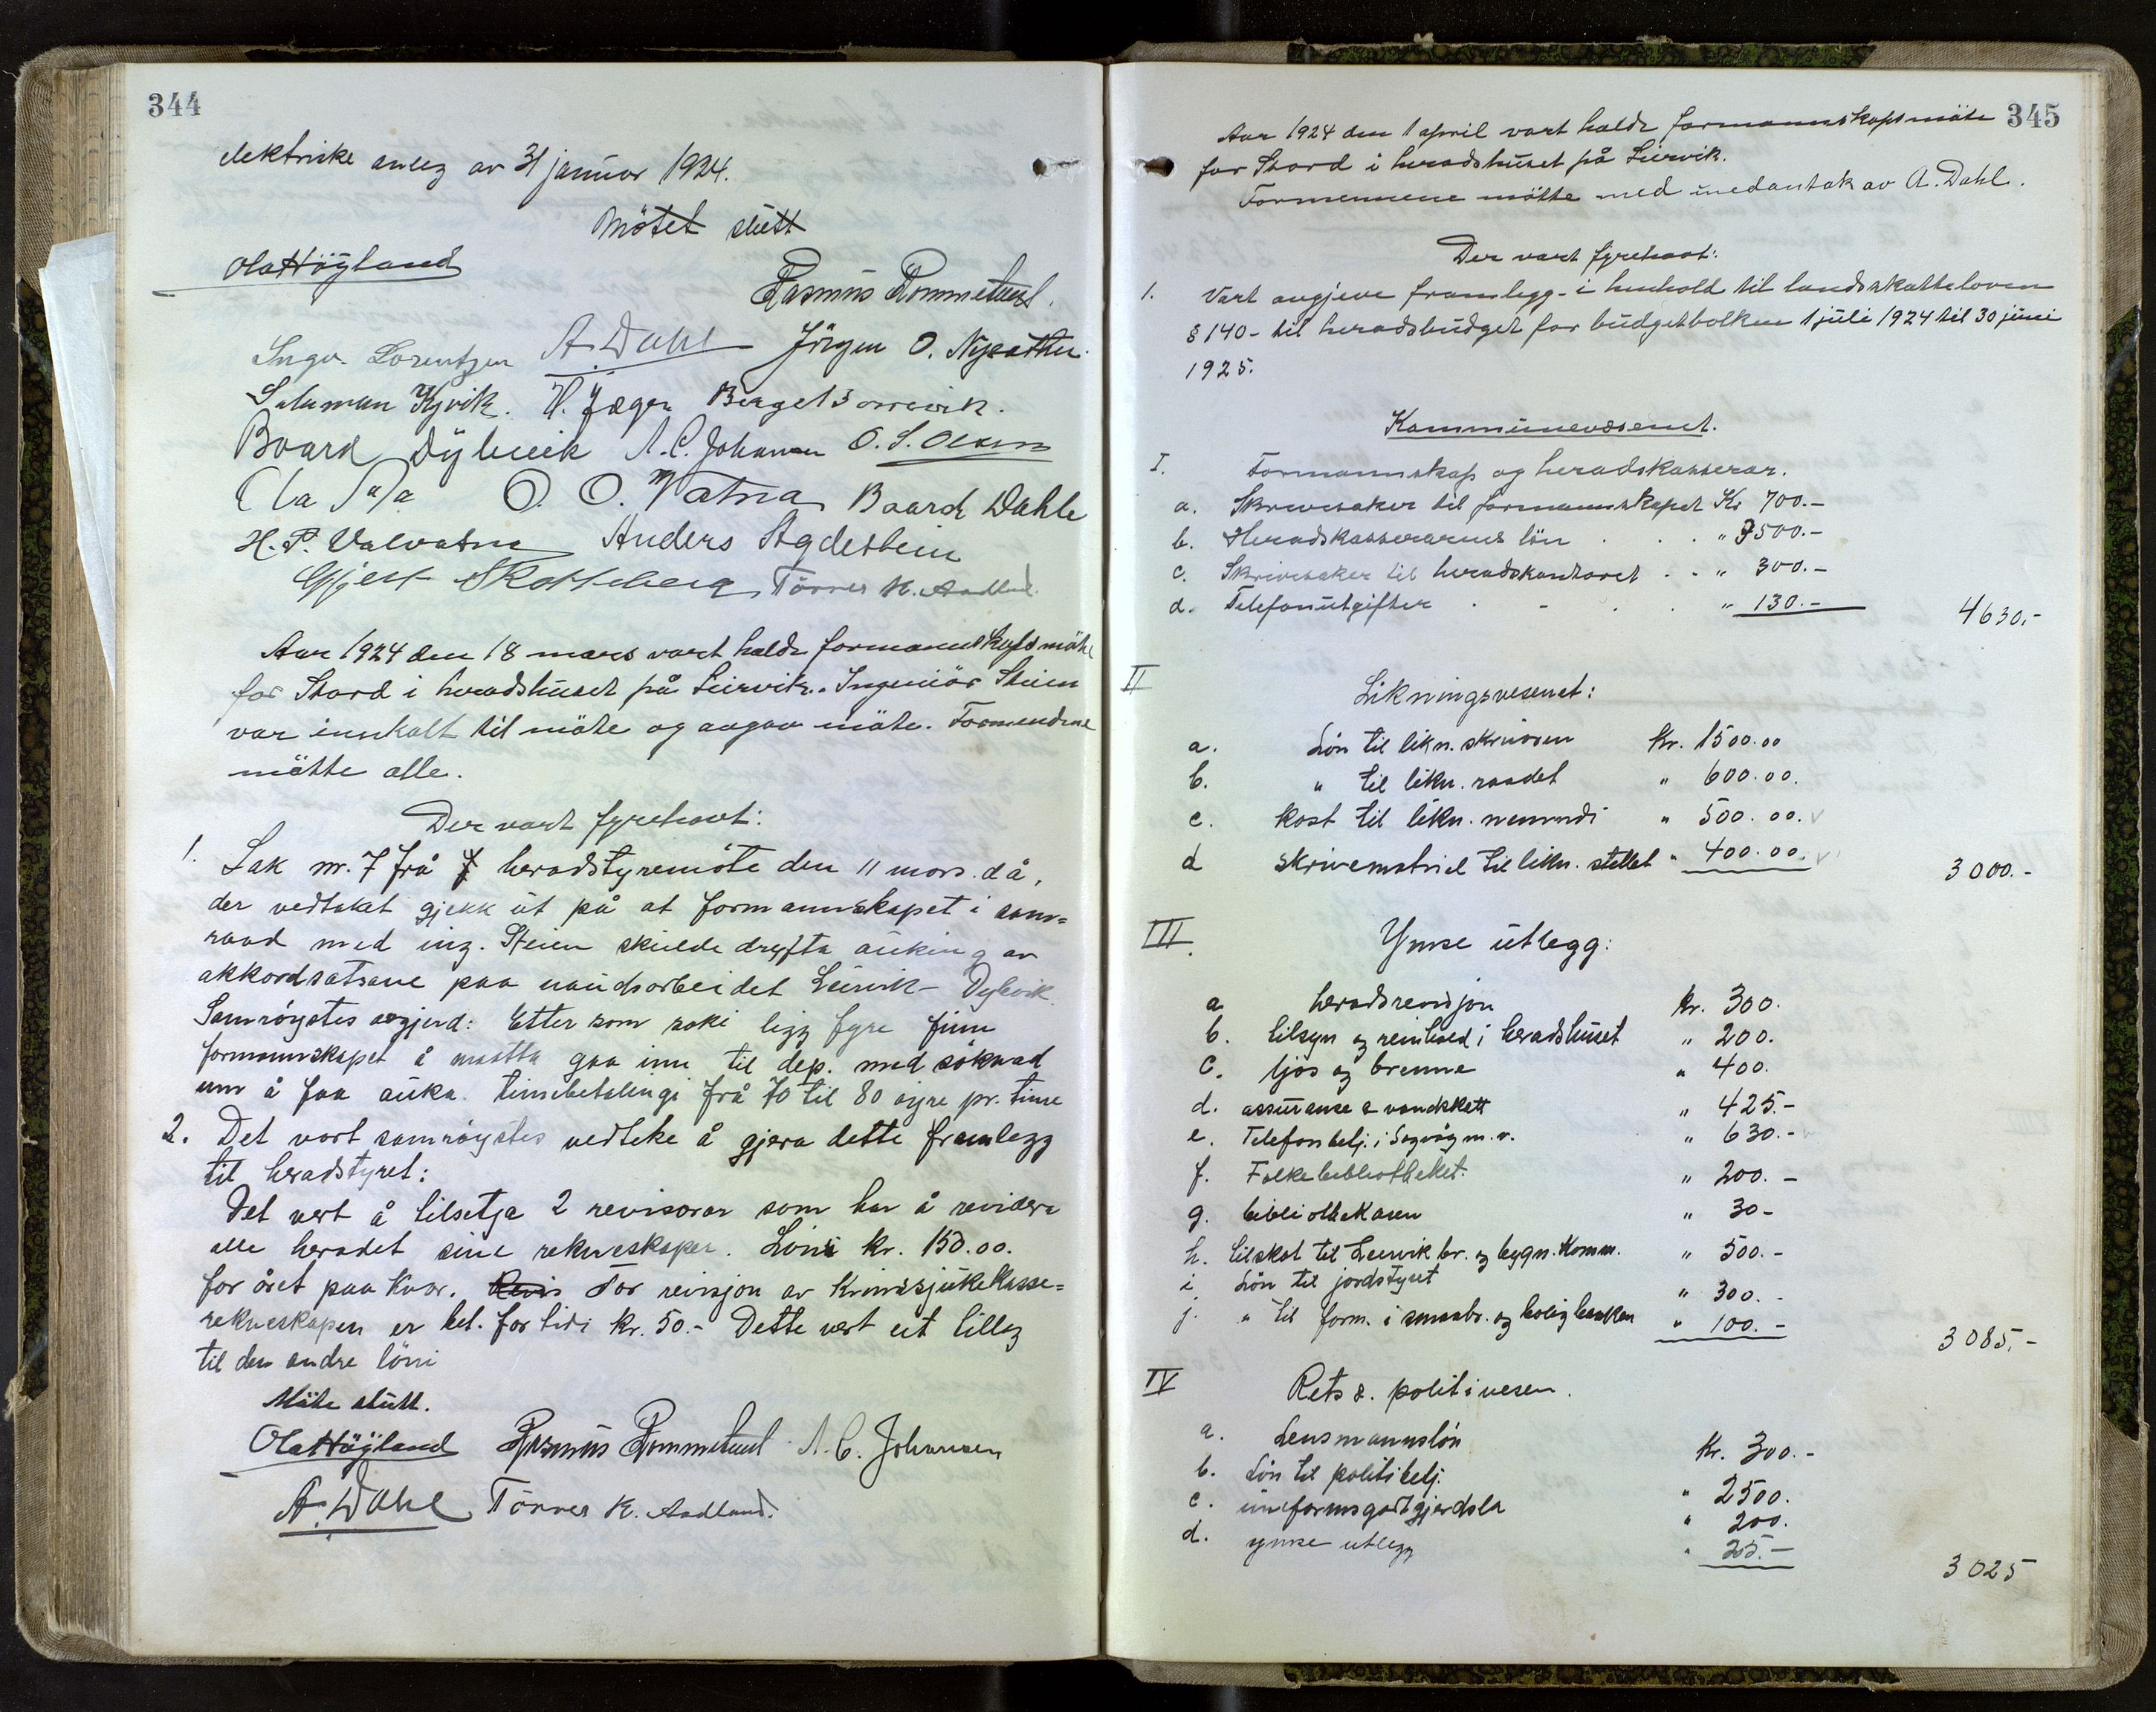 344
elektriske anleg av 31 januar 1924.
Mötet slutt
Ola Höyland
Rasmus Rommetveit.
Ingv. Lorentzen A. Dahl Jörgen O. Nysæther
Salamon Kyvik. H. Jæger Berget Sörevik.
Baard Dybvik A. C. Johansen O. S. Olsen
Ola O. O. Vatna Baard Dahle
H. P. Valvatne Anders Agdestein
Gjert Skotteberg Törres K. Aadland.
Aar 1924 den 18 mars vart halde formannskapsmöte
for Stord i heradshuset på Leirvik. Ingeniör Steien
var innkalt til möte og avgav möte. Formendene
mötte alle.
Der vart fyrehavt:
1. Sak nr. 7 frå heradstyremöte den 11 mars då,
der vedtaket gjekk ut på at formannskapet i sam=
raad med ing. Steien skulde dryfta auking av
akkordsatsane paa naudsarbeidet Leirvik – Dybvik.
Samröystes avgjerd: Etter som saki ligg fyre finn
formannskapet å maatta gaa inn til dep. med söknad
um å faa auka timebetalingi frå 70 til 80 öyre pr. time
2. Det vart samröystes vedteke å gjera dette framlegg
til heradstyret:
Det vert å tilsetja 2 revisorar som har å revidera
alle heradet sine rekneskaper. Löni kr. 150.00.
for året paa kvar. Revis For revisjon av Krinssjukekasse=
rekneskapen er bet. for tidi kr. 50.- Dette vert eit tillegg
til den andre löni
Möte slutt.
Ola Höyland Rasmus Rommetveit A. C. Johansen
A. Dahl Törres K. Aadland.
345
Aar 1924 den 1 april vart halde formannskapsmöte
for Stord i heradshuset på Leirvik.
Formennene mötte med undantak av A. Dahl.
Der vart fyrehavt:
1. Vart avgjeve framlegg i henhold til landsskatteloven
§ 140 - til heradsbudget for budgetbolken 1 juli 1924 til 30 juni
1925.
Kommunevæsenet.
I. Formannskap og heradskasserar.
a. Skrivesaker til formannskapet Kr 700.-
b. Heradskassererens lön . . . " 3500.-
c. Skrivesaker til heradskontoret . . " 300.-
d. Telefonutgifter . - . . " 130.- 4630.-
II Likningsvesenet:
a. Lön til likn. skrivaren Kr. 1500.00
b. " til likn. raadet " 600.00.
c. Kost til likn. nemndi " 500.00.
d Skrivematriel til likn. stellet " 400.00. 3000.-
III. Ymse utlegg:
a heradsrevisjon Kr. 300.
b. tilsyn og reinhold i heradshuset " 200.
c. ljos og brenne " 400.
d. assuranse & vandskatt " 425.-
e. Telefonbelj. i Sagvåg m. v. " 630.-
f. Folkebibliotheket. " 200.-
g. bibliothekaren " 30-
h. tilskot til Leirvik br. og bygn. komm. " 500.-
i. Lön til jordstyret " 300.-
j. " til form. i smaabr. og boligbanken " 100.- 3085.-
IV Rets & politivesen.
a. Lensmannslön Kr. 300.-
b. Lön til politibetj. " 2500.
c. uniformsgodtgjerdsla " 200.
d. ymse utlegg " 25.- 3025